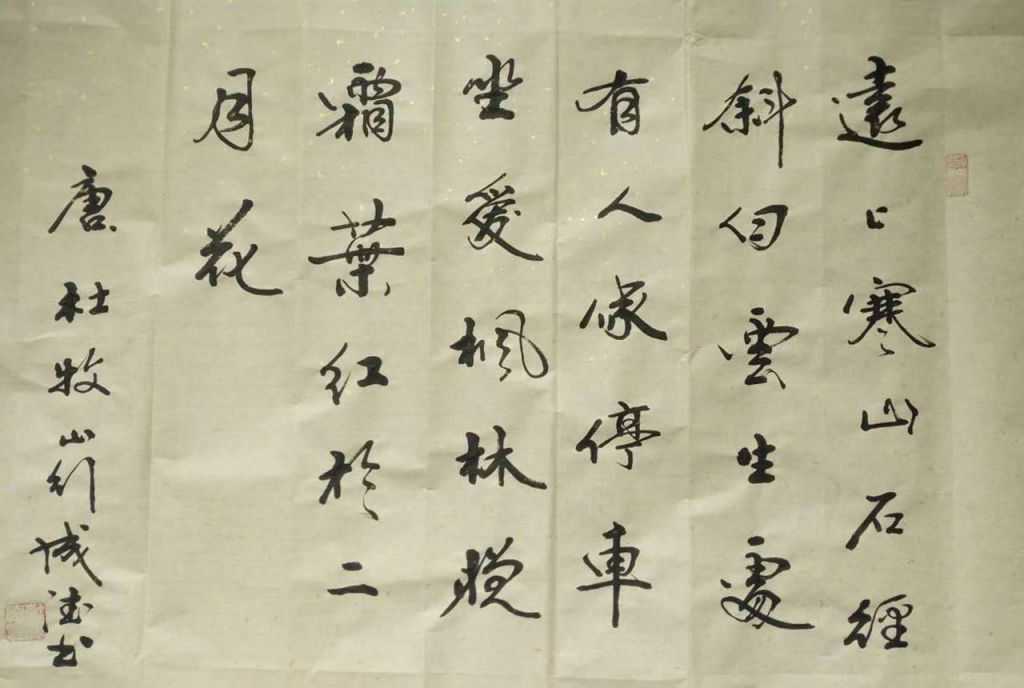 遠上寒山石經
斜白雲生處
有人家停車
坐愛楓林晚
霜葉紅於二
月花
唐杜牧山行城书